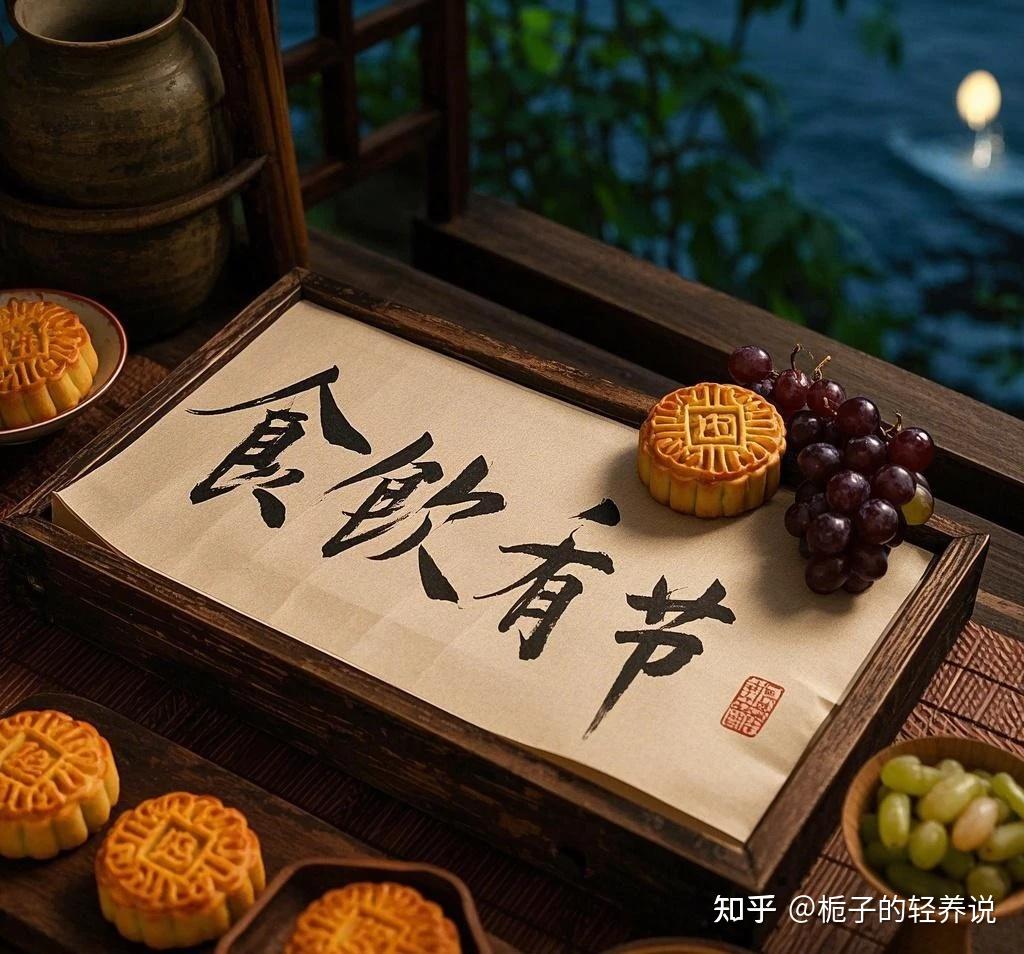 食飲有节
知乎 @栀子的轻养说